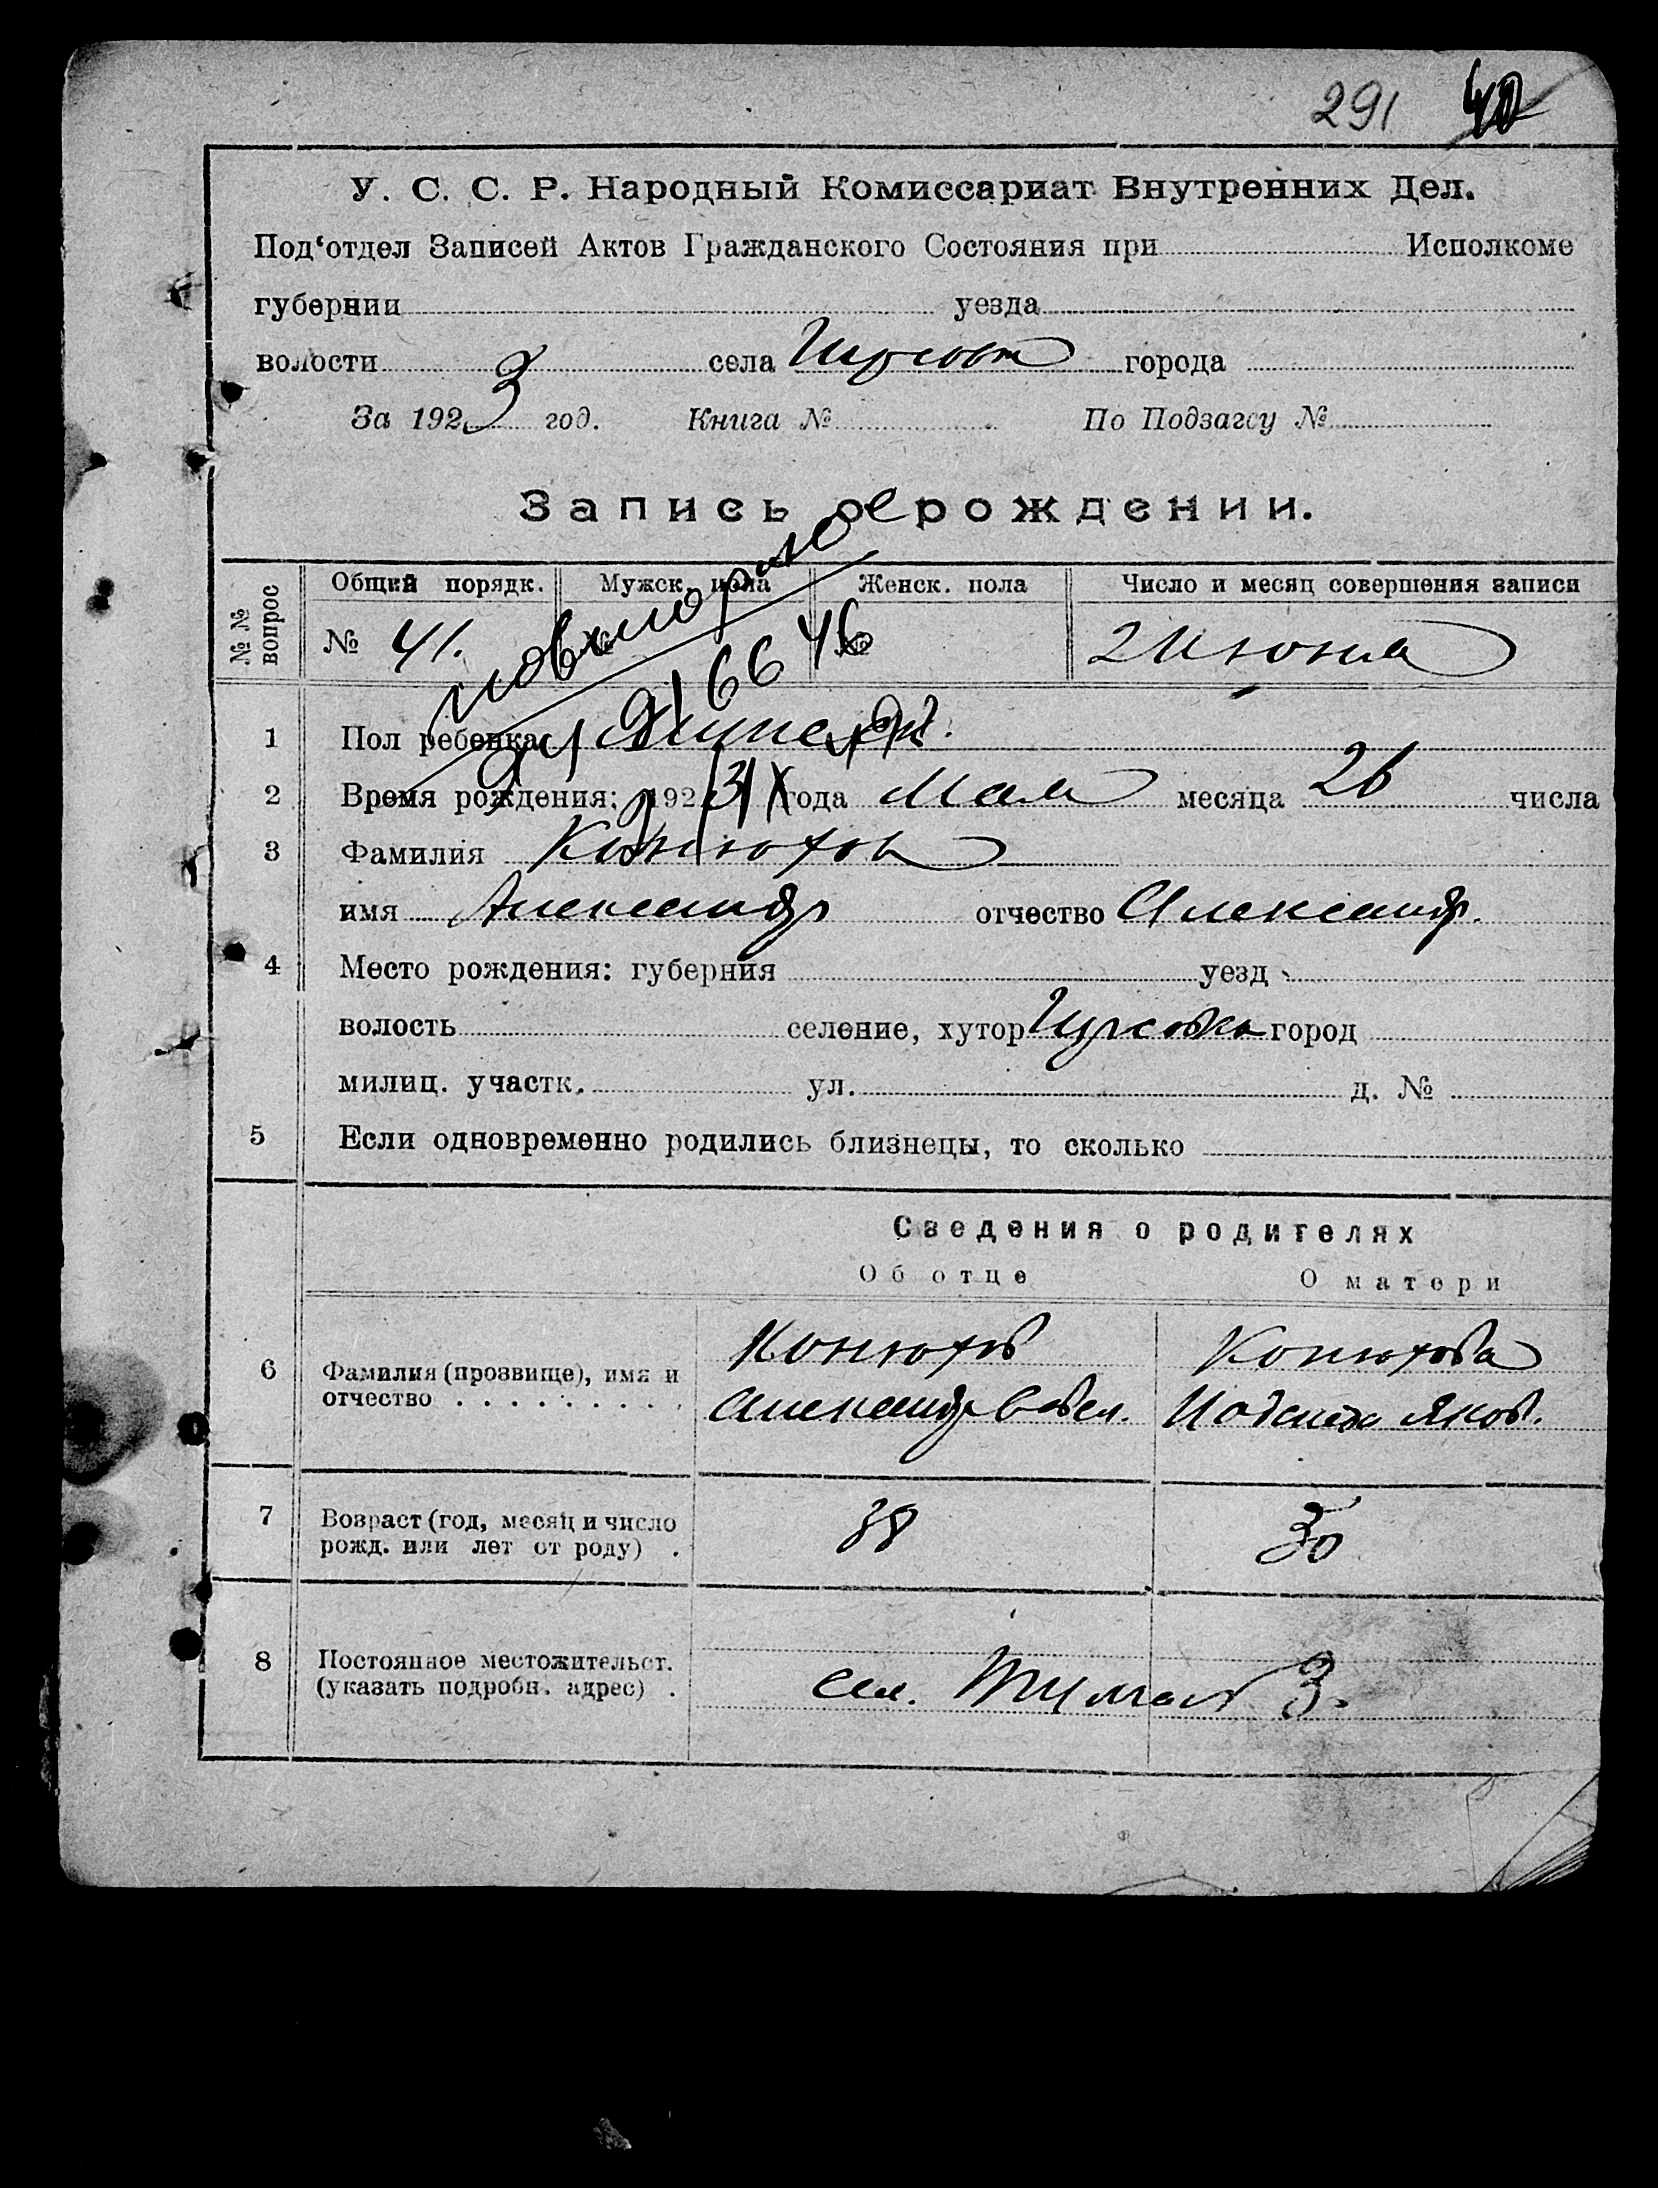 291 40
У. С. С. Р. Народный Комиссариат Внутренних Дел.
Под‘отдел Записей Актов Гражданского Состояния при Исполкоме
губернии уезда
волости села города
За 1923 год. Книга № По Подзагсу №
Запись о рождении.
№№ вопрос Общий порядк. Мужск. пола Женск. пола Число и месяц совершения записи
№ 41. № № 2 Июня
1 Пол ребенка
2 Время рождения: 1923 года Мая месяца 26 числа
3 Фамилия Конюхов
имя Александр отчество Александр.
4 Место рождения: губерния уезд
волость селение, хутор город
милиц. участк. ул. д. №
5 Если одновременно родились близнецы, то сколько
Сведения о родителях
Об отце О матери
6 Фамилия (прозвище), имя и Конюхов Конюхова
отчество Александр Яков.
7 Возраст (год, месяц и число 38 30
рожд. или лет от роду)
8 Постоянное местожительст.
(указать подробн. адрес) сел. 3.